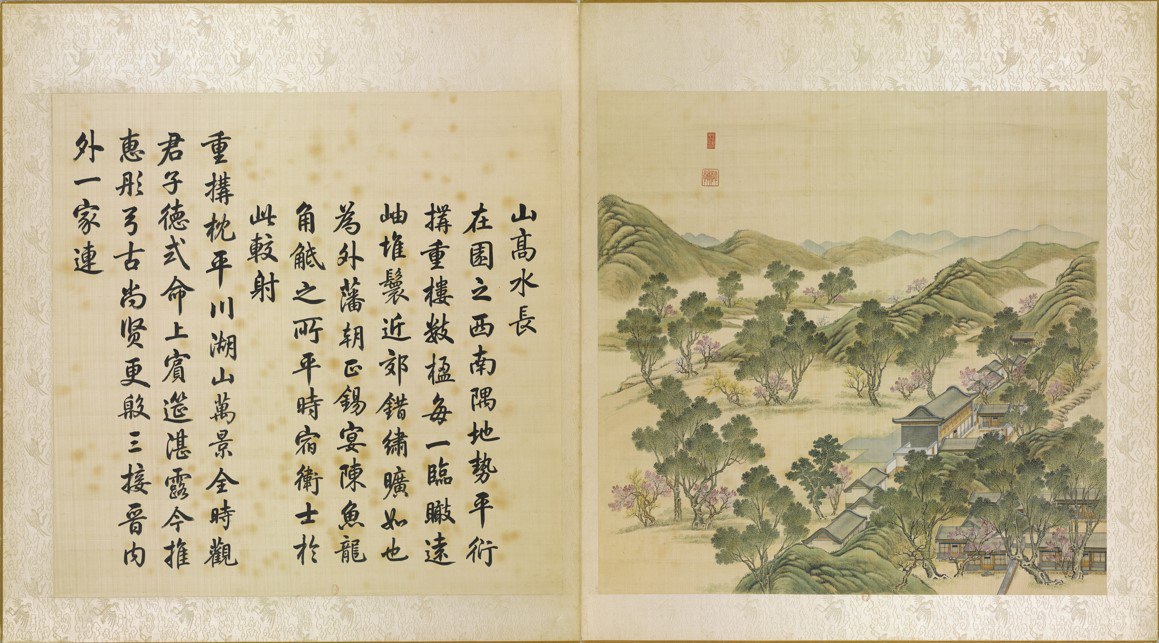 山髙水長
在園之西南隅地勢平衍
搆重樓數楹每一臨瞰遠
岫堆鬟近郊錯繡曠如也
為外藩朝正錫宴陳魚龍
角觝之所平時宿衛士於
此較射
重搆枕平川湖山萬景全時觀
君子德式命上賓筵湛露今推
惠彤弓古尚贤更殷三接晉內
外一家連